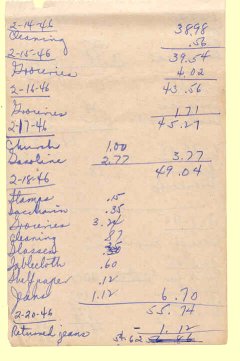 2-14-46 38.98
Cleaning .56
2-15-46 39.54
Groceries 4.02
2-16-46 43.56
Groceries 1.71
2-17-46 45.27
Church 1.00
Gasoline 2.77 3.77
2-18-46 49.04
Stamps .15
Saccharin .35
Groceries 3.24
Cleaning .87
Glasses
Tablecloth .60
Shelf paper .12
Jeans 1.12 6.70
2-20-46 55.74
Returned jeans - 1.12
54.62